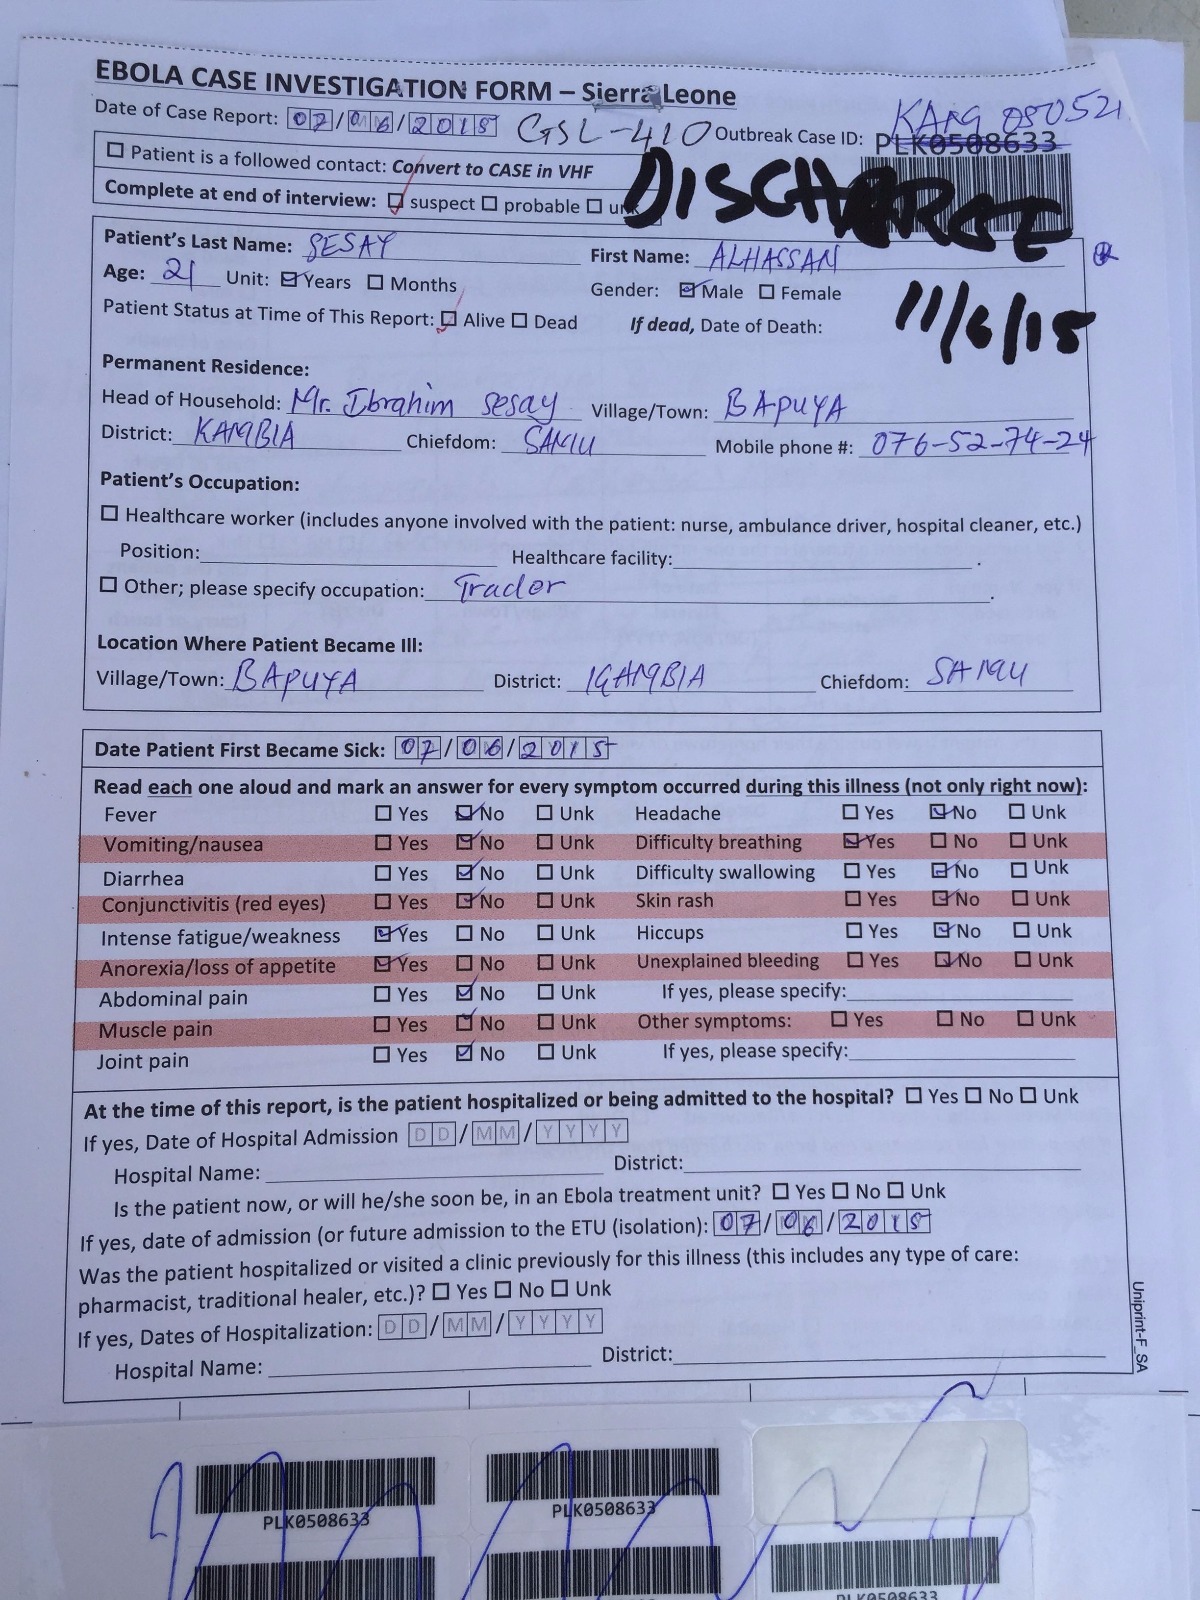 EBOLA CASE INVESTIGATION FORM – Sierra Leone
Date of Case Report: 07/06/2015 GSL-410 Outbreak Case ID: PLK0508633
KAMG 080521
☐ Patient is a followed contact: Convert to CASE in VHF
Complete at end of interview: ☑ suspect ☐ probable ☐ unk
DISCHARGE
11/6/15
Patient's Last Name: SESAY First Name: ALHASSAN
Age: 21 Unit: ☑ Years ☐ Months Gender: ☑ Male ☐ Female
Patient Status at Time of This Report: ☑ Alive ☐ Dead If dead, Date of Death:
Permanent Residence:
Head of Household: Mr. Ibrahim Sesay Village/Town: BAPUYA
District: KAMBIA Chiefdom: SAMU Mobile phone #: 076-52-74-24
Patient's Occupation:
☐ Healthcare worker (includes anyone involved with the patient: nurse, ambulance driver, hospital cleaner, etc.)
Position: Healthcare facility: .
☐ Other; please specify occupation: Trader .
Location Where Patient Became Ill:
Village/Town: BAPUYA District: KAMBIA Chiefdom: SAMU
Date Patient First Became Sick: 07/06/2015
Read each one aloud and mark an answer for every symptom occurred during this illness (not only right now):
Fever ☐ Yes ☑ No ☐ Unk Headache ☐ Yes ☑ No ☐ Unk
Vomiting/nausea ☐ Yes ☑ No ☐ Unk Difficulty breathing ☑ Yes ☐ No ☐ Unk
Diarrhea ☐ Yes ☑ No ☐ Unk Difficulty swallowing ☐ Yes ☑ No ☐ Unk
Conjunctivitis (red eyes) ☐ Yes ☑ No ☐ Unk Skin rash ☐ Yes ☑ No ☐ Unk
Intense fatigue/weakness ☑ Yes ☐ No ☐ Unk Hiccups ☐ Yes ☑ No ☐ Unk
Anorexia/loss of appetite ☑ Yes ☐ No ☐ Unk Unexplained bleeding ☐ Yes ☑ No ☐ Unk
Abdominal pain ☐ Yes ☑ No ☐ Unk If yes, please specify:
Muscle pain ☐ Yes ☑ No ☐ Unk Other symptoms: ☐ Yes ☐ No ☐ Unk
Joint pain ☐ Yes ☑ No ☐ Unk If yes, please specify:
At the time of this report, is the patient hospitalized or being admitted to the hospital? ☐ Yes ☐ No ☐ Unk
If yes, Date of Hospital Admission DD/MM/YYYY
Hospital Name: District:
Is the patient now, or will he/she soon be, in an Ebola treatment unit? ☐ Yes ☐ No ☐ Unk
If yes, date of admission (or future admission to the ETU (isolation): 07/06/2015
Was the patient hospitalized or visited a clinic previously for this illness (this includes any type of care:
pharmacist, traditional healer, etc.)? ☐ Yes ☐ No ☐ Unk
If yes, Dates of Hospitalization: DD/MM/YYYY
Hospital Name: District:
Uniprint-F_SA
PLK0508633 PLK0508633
PLK0508633